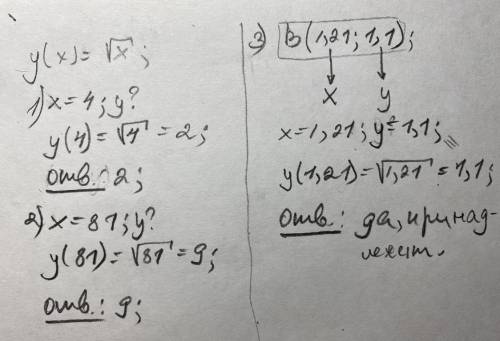 y(x) = √x ;
1) x = 4; y?
y(4) = √4 = 2;
отв.: 2;
2) x = 81; y?
y(81) = √81 = 9;
отв.: 9;
3) B(1,21; 1,1);
x y
x = 1,21; y = 1,1;
y(1,21) = √1,21 = 1,1;
отв.: да, принад-
лежит.